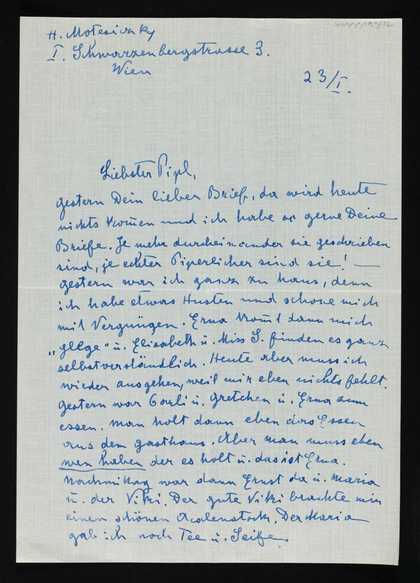 H. Motesiczky
I. Schwarzenbergstrasse 3.
Wien
23/I.
Liebster Pipl,
gestern Dein lieber Brief, da wird heute
nichts kom̄en und ich habe so gerne Deine
Briefe. Je mehr durcheinander sie geschrieben
sind, je echter Piperlicher sind sie! —
Gestern war ich ganz zu haus, denn
ich habe etwas Husten und schone mich
mit Vergnügen. Erna kom̄t dann mich
„ u. Elisabeth u. Miss S. finden es ganz
selbstverständlich. Heute aber muss ich
wieder ausgehen, weil mir eben nichts fehlt.
Gestern war u. Gretchen u. Erna zum
essen. Man holt dann eben das Essen
aus dem Gasthaus. Aber man muss eben
wen haben der es holt u. das ist Erna.
Nachmittag war dann Ernst da u. Maria
u. der Viki. Der gute Viki brachte mir
einen schönen Azalenstock. Der Maria
gab ich noch Tee u. Seife.